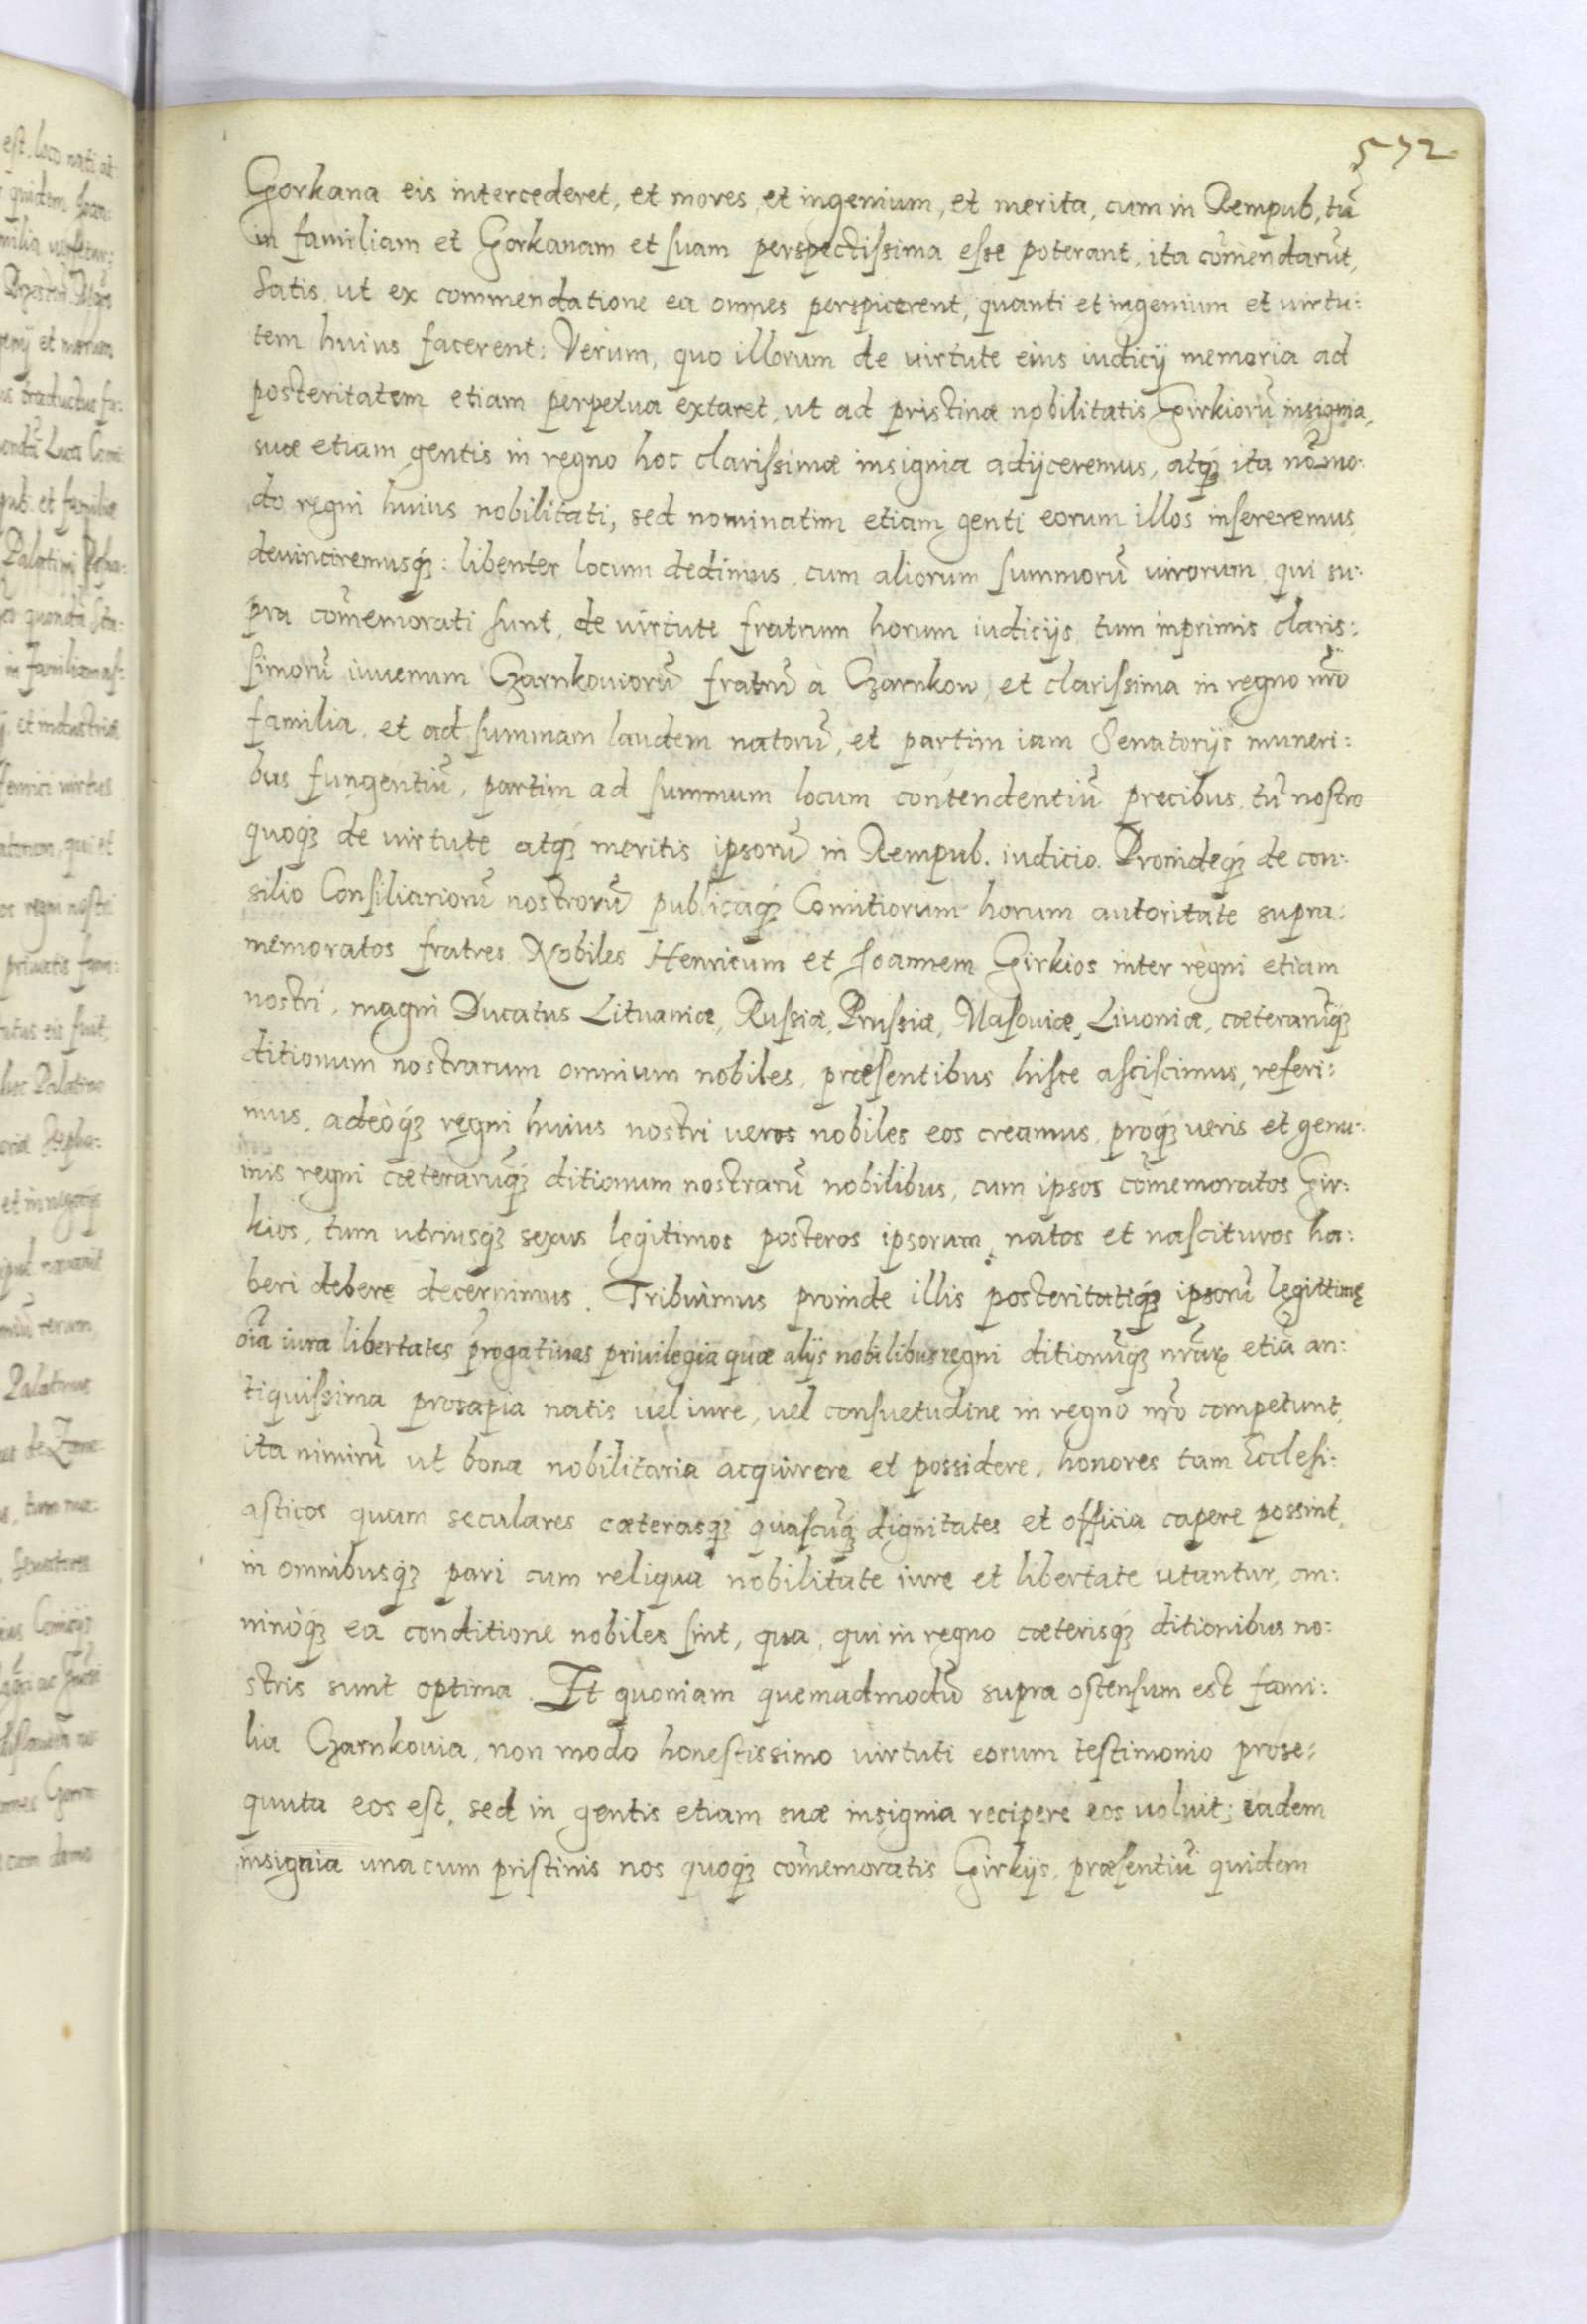 572
Gorkana eis intercederet, et mores et ingenium, et merita, cum in Rempub, tũ
in familiam et Gorkanam et suam perspectissima esse poterant, ita com̃endarũt,
satis ut ex commendatione ea omnes perspicerent, quanti et ingenium et virtu:
tem huius facerent: Verum, quo illorum de virtute eius iudicij memoria ad
posteritatem etiam perpetua extaret, ut ad pristinæ nobilitatis Girkiorũ insignia,
suæ etiam gentis in regno hoc clarissimæ insignia adijceremus, atq́ꝫ ita nõ mo:
do regni huius nobilitati, sed nominatim etiam genti eorum illos insereremus
devinciremusq́ꝫ: libenter locum dedimus, cum aliorum summorũ virorum, qui su:
pra com̃emorati sunt, de virtute fratrum horum iudicijs, tum inprimis claris:
simorũ iuvenum Czarnkoviorũ fratrũ à Czarnkow, et clarissima in regno nr̃o
familia, et ad summam laudem natorũ, et partim iam Senatorijs muneri:
bus fungentiũ, partim ad summum locum contendentiũ precibus, tũ nostro
quoq́ꝫ de virtute atq́ꝫ meritis ipsorũ in Rempub. iudicio. Proindeq́ꝫ de con:
silio Consiliariorũ nostrorũ publicaq́ꝫ Comitiorum horum autoritate supra:
memoratos fratres Nobiles Henricum et Joannem Girkios inter regni etiam
nostri, magni Ducatus Lituaniæ, Russiæ, Prussiæ, Masoviæ, Livoniæ, cæterarũq́ꝫ
ditionum nostrarum omnium nobiles, præsentibus hisce asciscimus, referi:
mus, adeòq́ꝫ regni huius nostri veros nobiles eos creamus, proq́ꝫ veris et genu:
inis regni cæterarũq́ꝫ ditionum nostrarũ nobilibus, cum ipsos com̃emoratos Gir:
kios, tum utriusq́ꝫ sexus legitimos posteros ipsorum, natos et nascituros ha:
beri debere decernimus. Tribuimus proinde illis posteritatiq́ꝫ ipsorũ legittimę
oĩa iura libertates p̃rogativas privilegia quæ alijs nobilibus regni ditionũq́ꝫ nr̃arꝝ etiã an:
tiquissima prosapia natis vel iure, vel consuetudine in regno nr̃o competunt,
ita nimirũ ut bona nobilitaria acquirere et possidere, honores tam Ecclesi:
asticos quam seculares cæterasq́ꝫ quascũq́ꝫ dignitates et officia capere possint,
in omnibusq́ꝫ pari cum reliqua nobilitate iure et libertate utantur, om:
ninòq́ꝫ ea conditione nobiles sint, qua, qui in regno cæterisq́ꝫ ditionibus no:
stris sunt optima. Et quoniam quemadmodũ supra ostensum est fami:
lia Czarnkovia, non modo honestissimo virtuti eorum testimonio prose:
quuta eos est, sed in gentis etiam suæ insignia recipere eos voluit; eadem
insignia una cum pristinis nos quoq́ꝫ com̃emoratis Girkijs, præsentiũ quidem